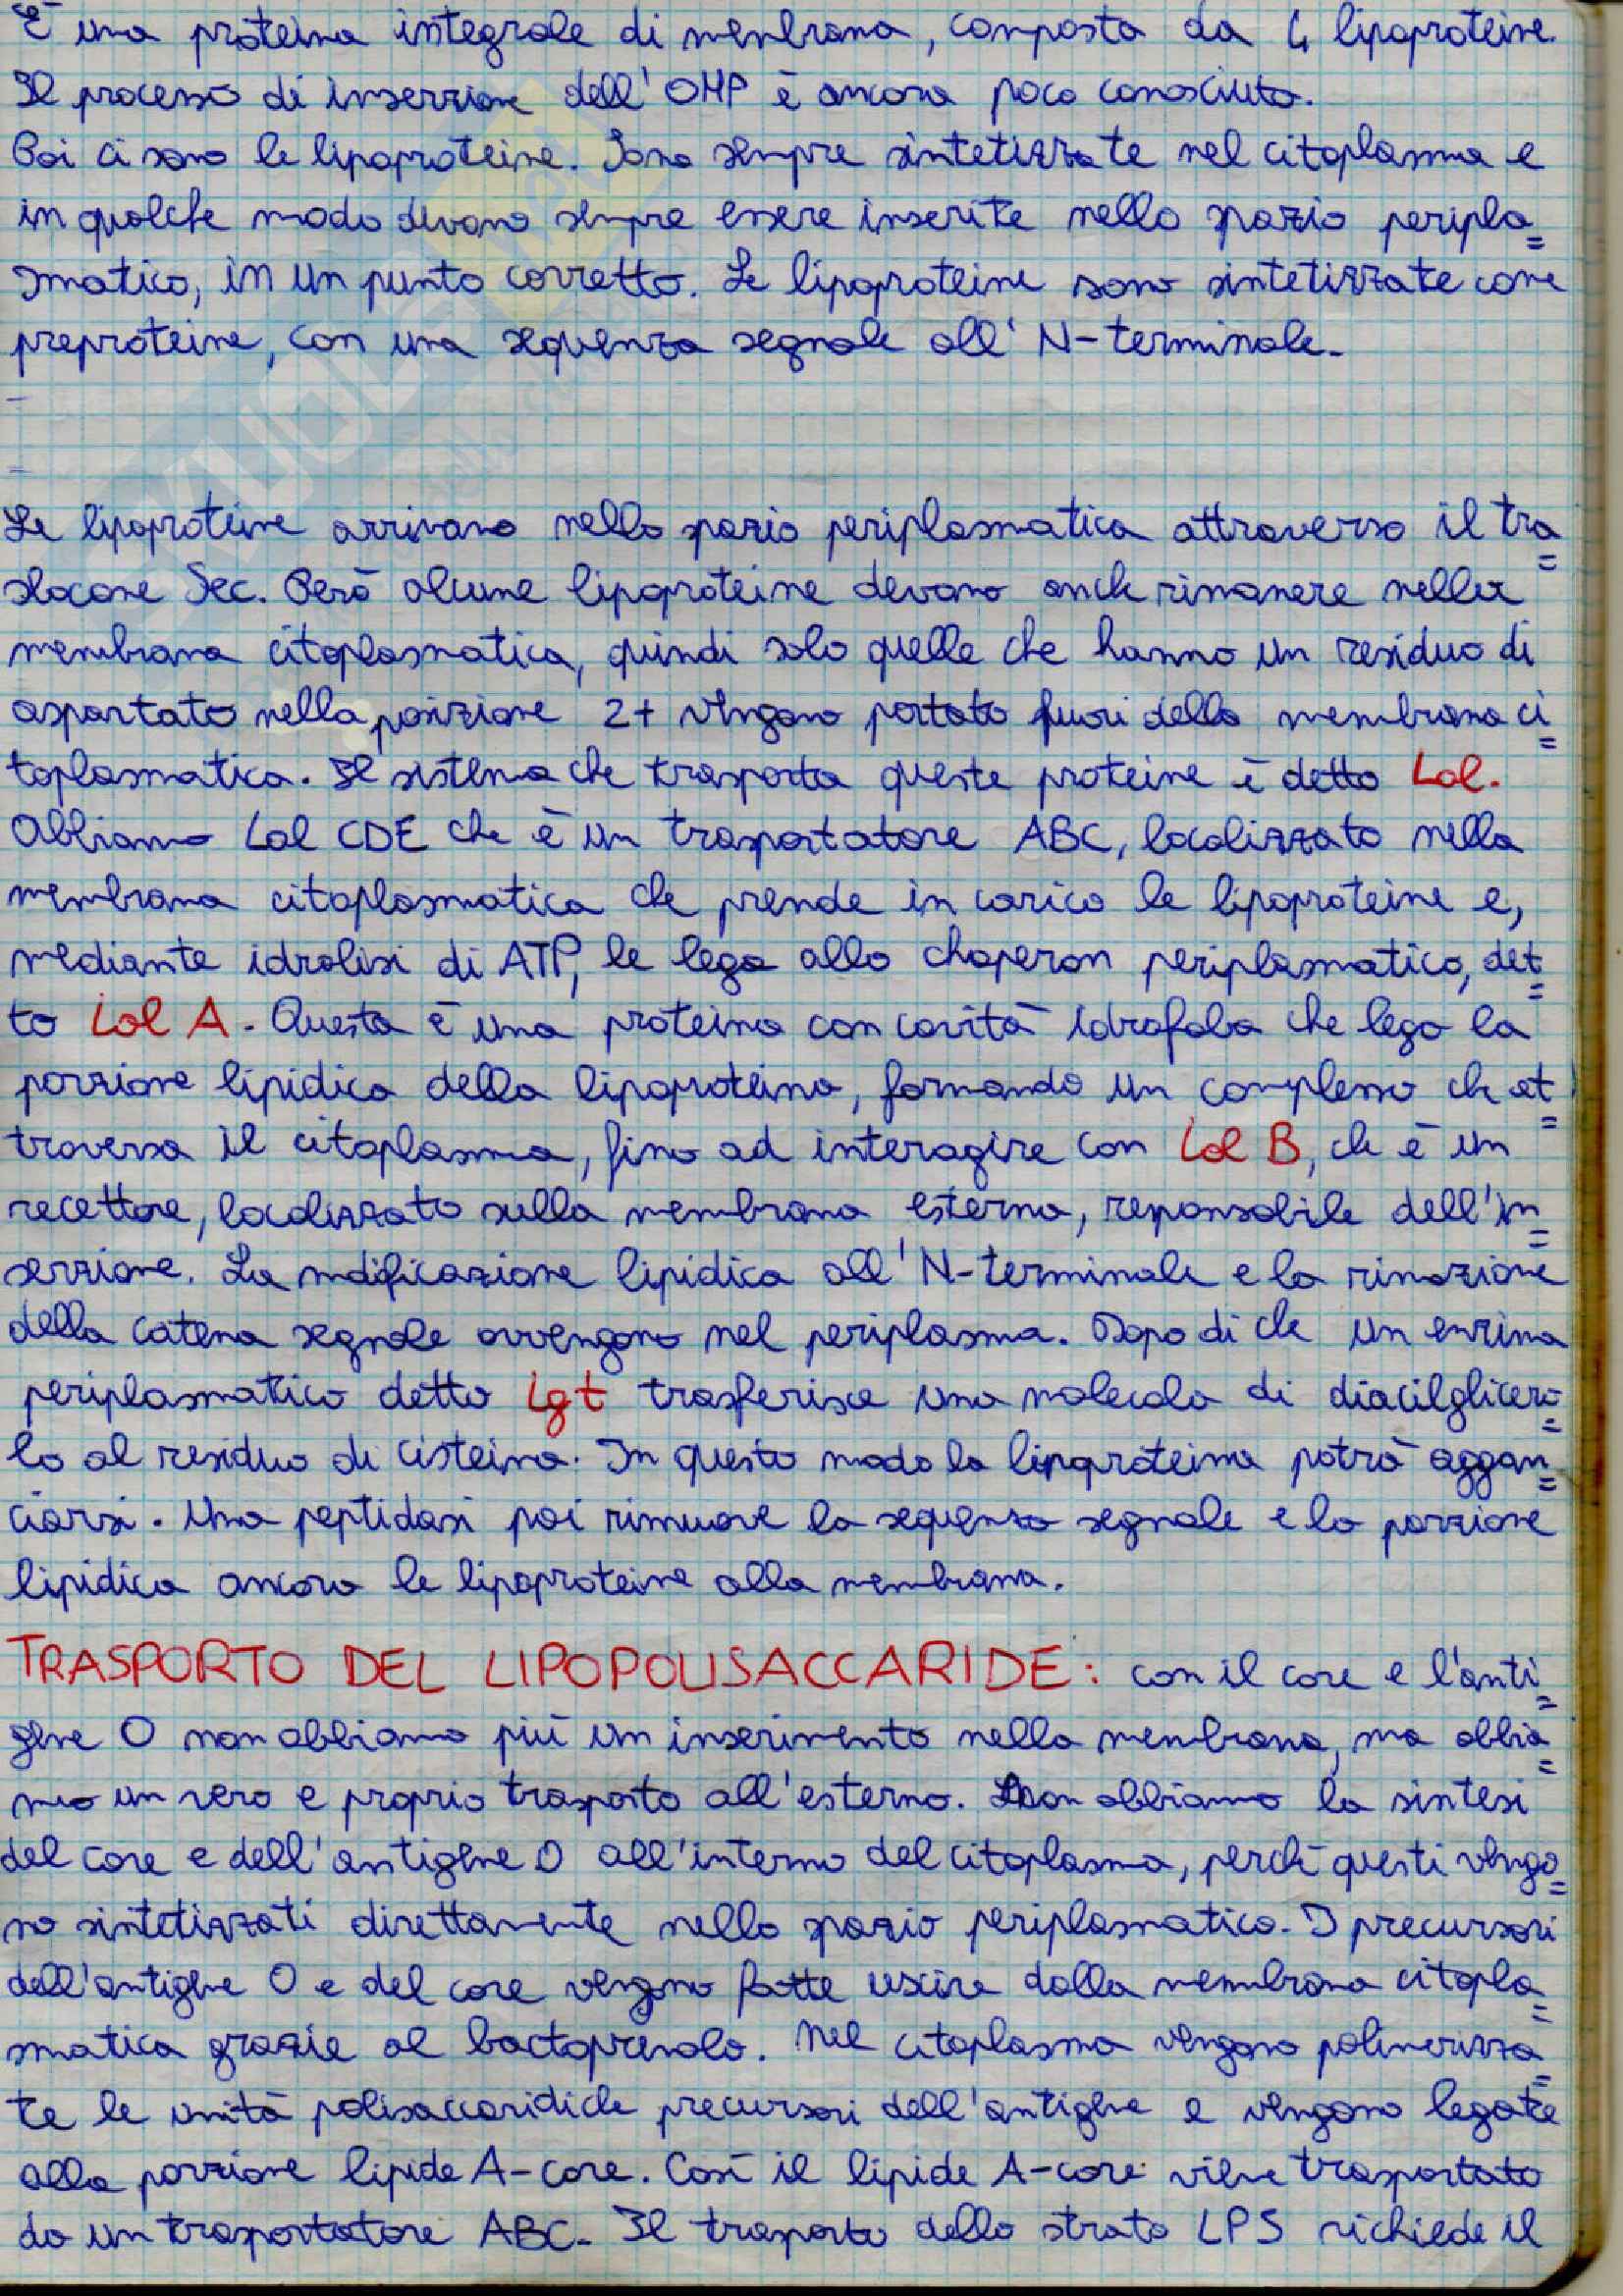 È una proteina integrale di membrana, composta da 4 lipoproteine.
Il processo di inserzione dell' OMP è ancora poco conosciuto.
Poi ci sono le lipoproteine. Sono sempre sintetizzate nel citoplasma e
in qualche modo devono sempre essere inserite nello spazio peripla=
smatico, in un punto corretto. Le lipoproteine sono sintetizzate come
preproteine, con una sequenza segnale all' N-terminale.
Le lipoproteine arrivano nello spazio periplasmatica attraverso il tra=
slocone Sec. Però alcune lipoproteine devono anche rimanere nella
membrana citoplasmatica, quindi solo quelle che hanno un residuo di
aspartato nella posizione 2+ vengono portate fuori della membrana ci=
toplasmatica. Il sistema che trasporta queste proteine è detto Lol.
Abbiamo Lol CDE che è un trasportatore ABC, localizzato nella
membrana citoplasmatica che prende in carico le lipoproteine e,
mediante idrolisi di ATP, le lega allo chaperon periplasmatico, det=
to Lol A. Questa è una proteina con cavità idrofoba che lega la
porzione lipidica della lipoproteina, formando un complesso che at=
traversa il citoplasma, fino ad interagire con Lol B, che è un
recettore, localizzato sulla membrana esterna, responsabile dell'in=
serzione. La modificazione lipidica all' N-terminale e la rimozione
della catena segnale avvengono nel periplasma. Dopo di che un enzima
periplasmatico detto Lgt trasferisce una molecola di diacilglicero=
lo al residuo di cisteina. In questo modo la lipoproteina potrà aggan=
ciarsi. Una peptidasi poi rimuove la sequenza segnale e la porzione
lipidica ancora le lipoproteine alla membrana.
TRASPORTO DEL LIPOPOLISACCARIDE: con il core e l'anti=
gene O non abbiamo più un inserimento nella membrana, ma abbia=
mo un vero e proprio trasporto all'esterno. Non abbiamo la sintesi
del core e dell'antigene O all'interno del citoplasma, perché questi vengo=
no sintetizzati direttamente nello spazio periplasmatico. I precursori
dell'antigene O e del core vengono fatte uscire dalla membrana citopla=
smatica grazie al bactoprenolo. Nel citoplasma vengono polimerizza=
te le unità polisaccaridiche precursori dell'antigene e vengono legate
alla porzione lipide A-core. Così il lipide A-core viene trasportato
da un trasportatore ABC. Il trasporto dello strato LPS richiede il